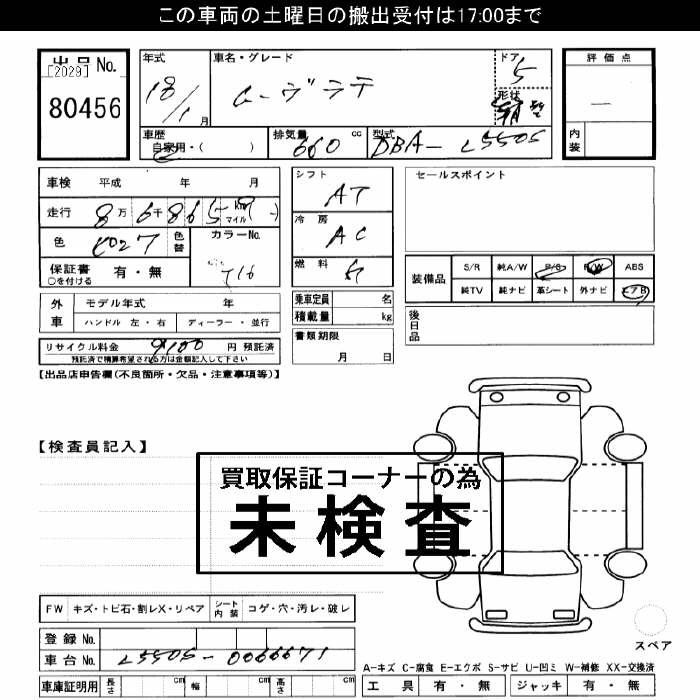 この車両の土曜日の搬出受付は17:00まで
出品 No.
[2029]
80456
年式
18/1月
車名・グレード
ムーヴラテ
ドア
5
形状
評価点
内装
車歴
自家用・( )
排気量
660 cc
型式
DBA- L550S
車検 平成 年 月
走行 8万 6千 8 6 5 km マイル
色
色替
カラーNo.
T16
保証書
○を付ける
有・無
シフト
AT
冷房
AC
燃料
セールスポイント
装備品
S/R 純A/W P/S P/W ABS
純TV 純ナビ 革シート 外ナビ エアB
外車
モデル年式 年
ハンドル 左・右 ディーラー・並行
乗車定員 名
積載量 kg
後日品
リサイクル料金 9100 円 預託済
預託済で精算希望される方は金額記入して下さい
書類期限
月 日
【出品店申告欄(不良箇所・欠品・注意事項等)】
【検査員記入】
買取保証コーナーの為
未検査
FW キズ・トビ石・割レX・リペア シート内装 コゲ・穴・汚レ・破レ
スペア
登録 No.
車台 No. L550S-0066671
A-キズ C-腐食 E-エクボ S-サビ U-凹ミ W-補修 XX-交換済
車庫証明用 長さ cm 幅 cm 高さ cm
工具 有・無 ジャッキ 有・無